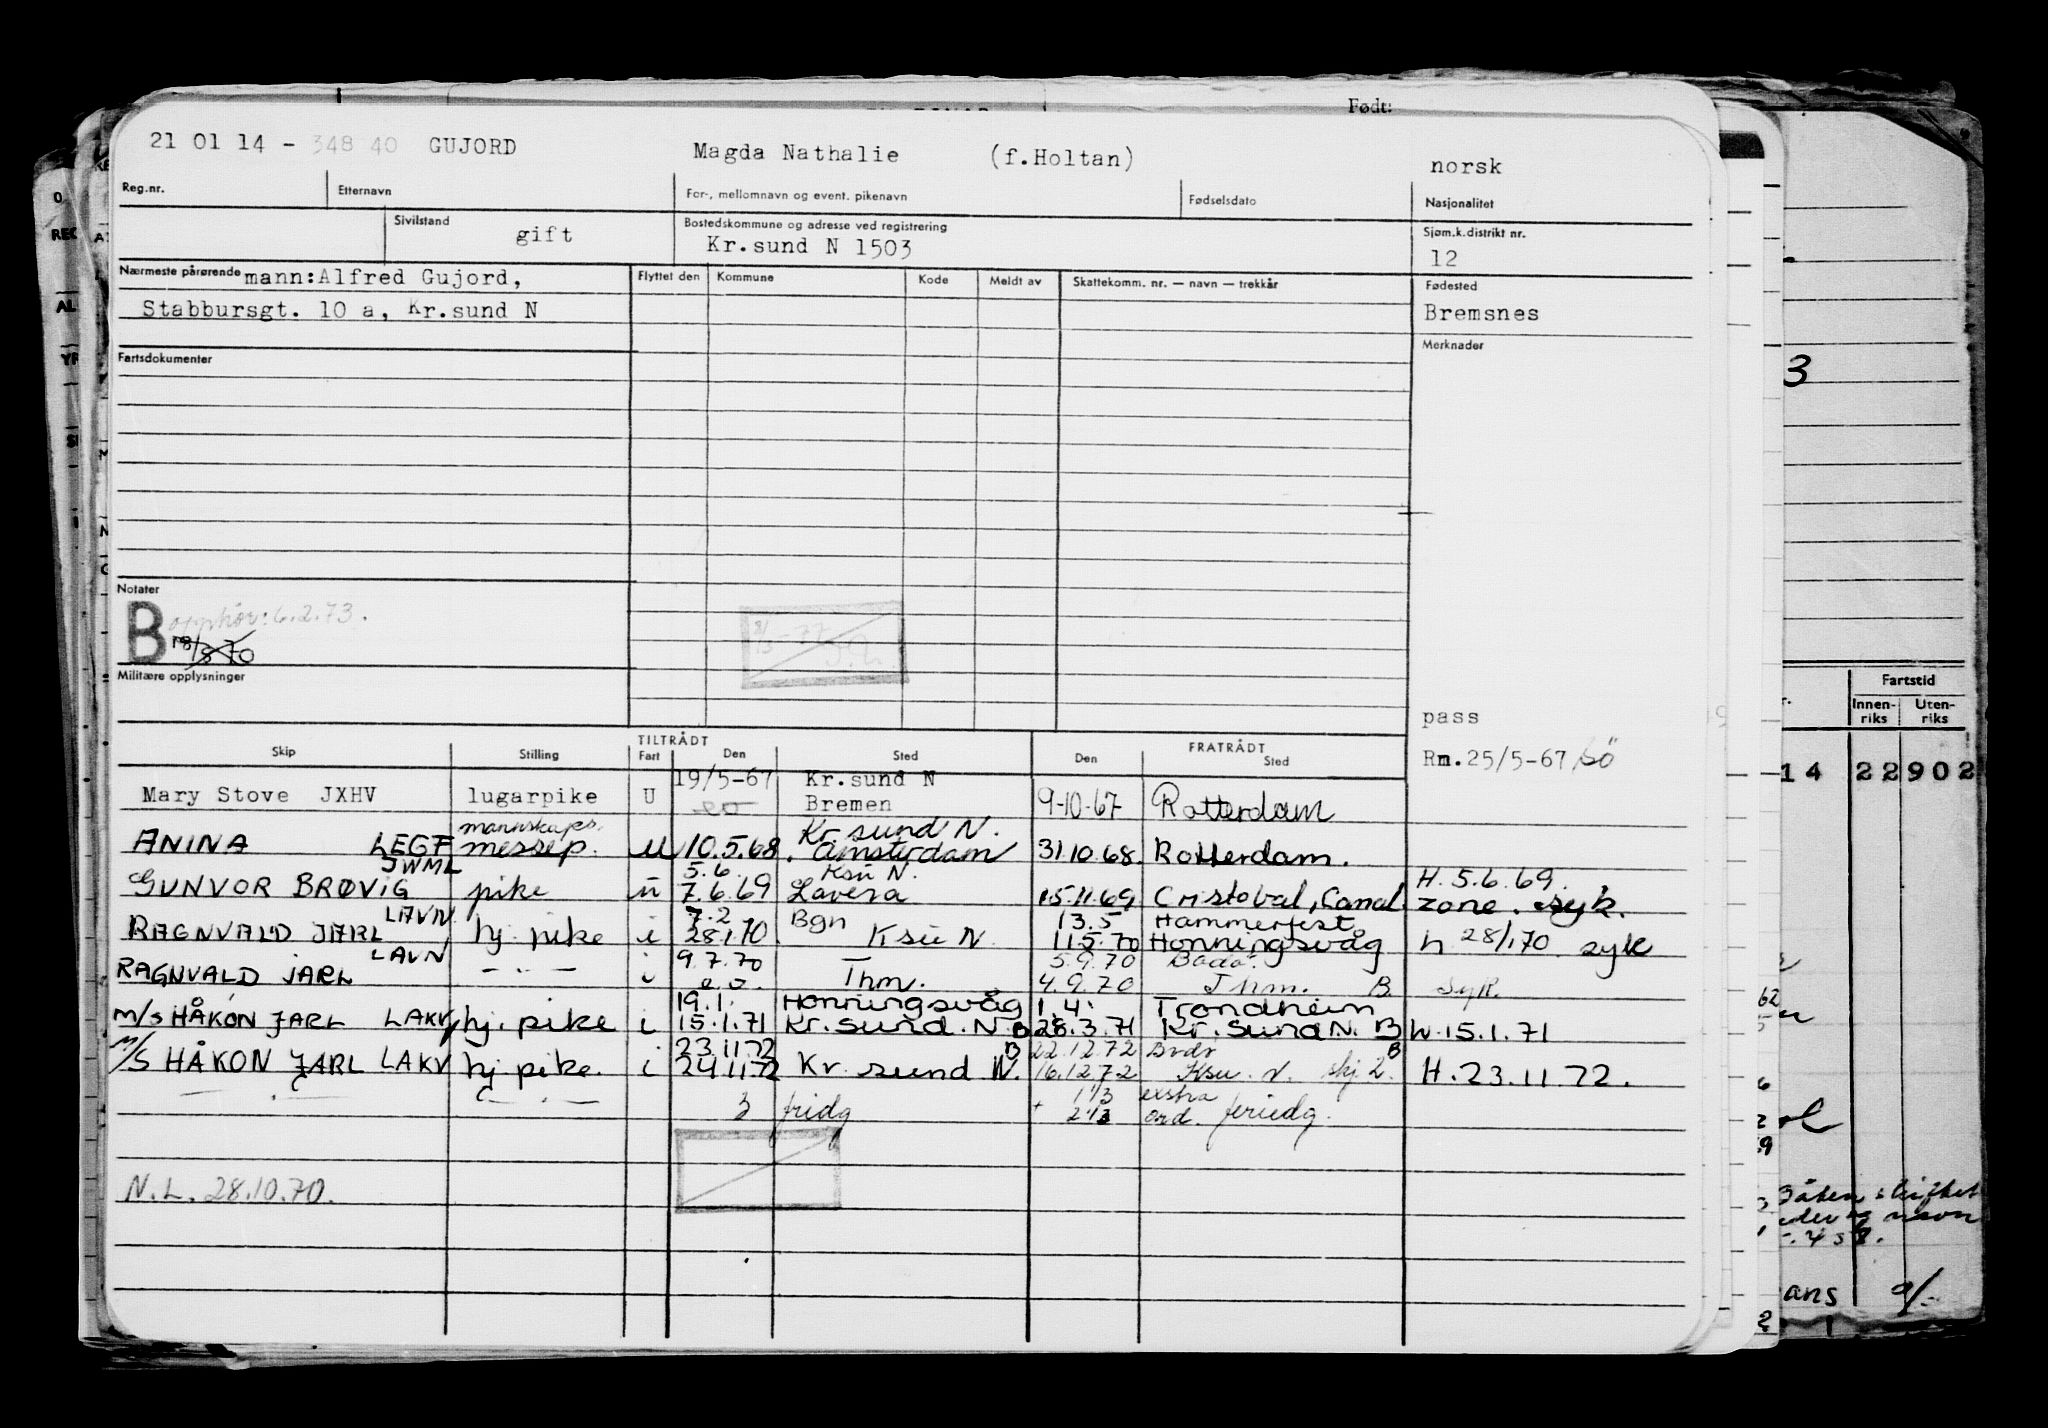 Født:
21 01 14 - 348 40 GUJORD Magda Nathalie (f.Holtan) norsk
Reg.nr. Etternavn For-, mellomnavn og event. pikenavn Fødselsdato Nasjonalitet
Sivilstand Bostedskommune og adresse ved registrering Sjøm.k.distrikt nr.
gift Kr.sund N 1503 12
Nærmeste pårørende mann:Alfred Gujord, Flyttet den Kommune Kode Meldt av Skattekomm. nr. — navn — trekkår Fødested
Stabbursgt. 10 a, Kr.sund N Bremsnes
Fartsdokumenter Merknader
Notater
B opphør: 6.2.73.
18/8 70
Militære opplysninger
pass
Skip Stilling TILTRÅDT Fart Den Sted Den FRATRÅDT Sted
Rm.25/5-67
19/5-67 Kr.sund N
Mary Stove JXHV lugarpike U eo Bremen 9-10-67 Rotterdam
mannskaps. Kr.sund N.
ANINA LEGF messep. u 10.5.68. Amsterdam 31.10.68. Rotterdam.
JWML 5.6. Ksu N. H. 5.6.69.
GUNVOR BRØVIG pike u 7.6.69 Lavera 15.11.69 Cristobal, Canal zone. syk.
LAVN 7.2 Bgn 13.5 Hammerfest
RAGNVALD JARL hj. pike i 28.1.70 Ksu N. 11.5.70 Honningsvåg h 28/1.70 syk
LAVN 9.7.70 5.9.70 Bodø.
RAGNVALD JARL - " - i e.o. Thm. 4.9.70 Thm. B. syk.
19.1. Honningsvåg 1.4. Trondheim
m/s HÅKON JARL LAKV hj. pike i 15.1.71 Kr.sund.N.B 28.3.71 Kr.sund N. B h.15.1.71
23.11.72 B 22.12.72 B
M/S HÅKON JARL LAKV hj. pike. i 24.11.72 Kr sund N. 16.12.72 Ksu. N. H.23.11.72.
3 fridg + 1 1/3 extra
2 1/3 ord. feriedg.
N.L. 28.10.70.
3
Fartstid
Innen-riks Uten-riks
14 22 902
ans